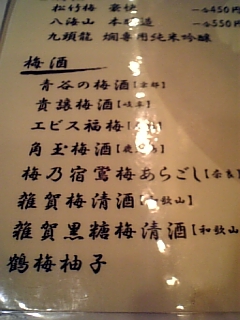 松竹梅 豪快 ―¥450
八海山 本醸造 ―¥550
九頭龍 燗専用純米吟醸
梅酒
青谷の梅酒【京都】
貴醸梅酒【岐阜】
ヱビス福梅
角玉梅酒【鹿
梅乃宿鶯梅あらごし【奈良】
雑賀梅清酒【和歌山】
雑賀黒糖梅清酒【和歌山】
鶴梅柚子